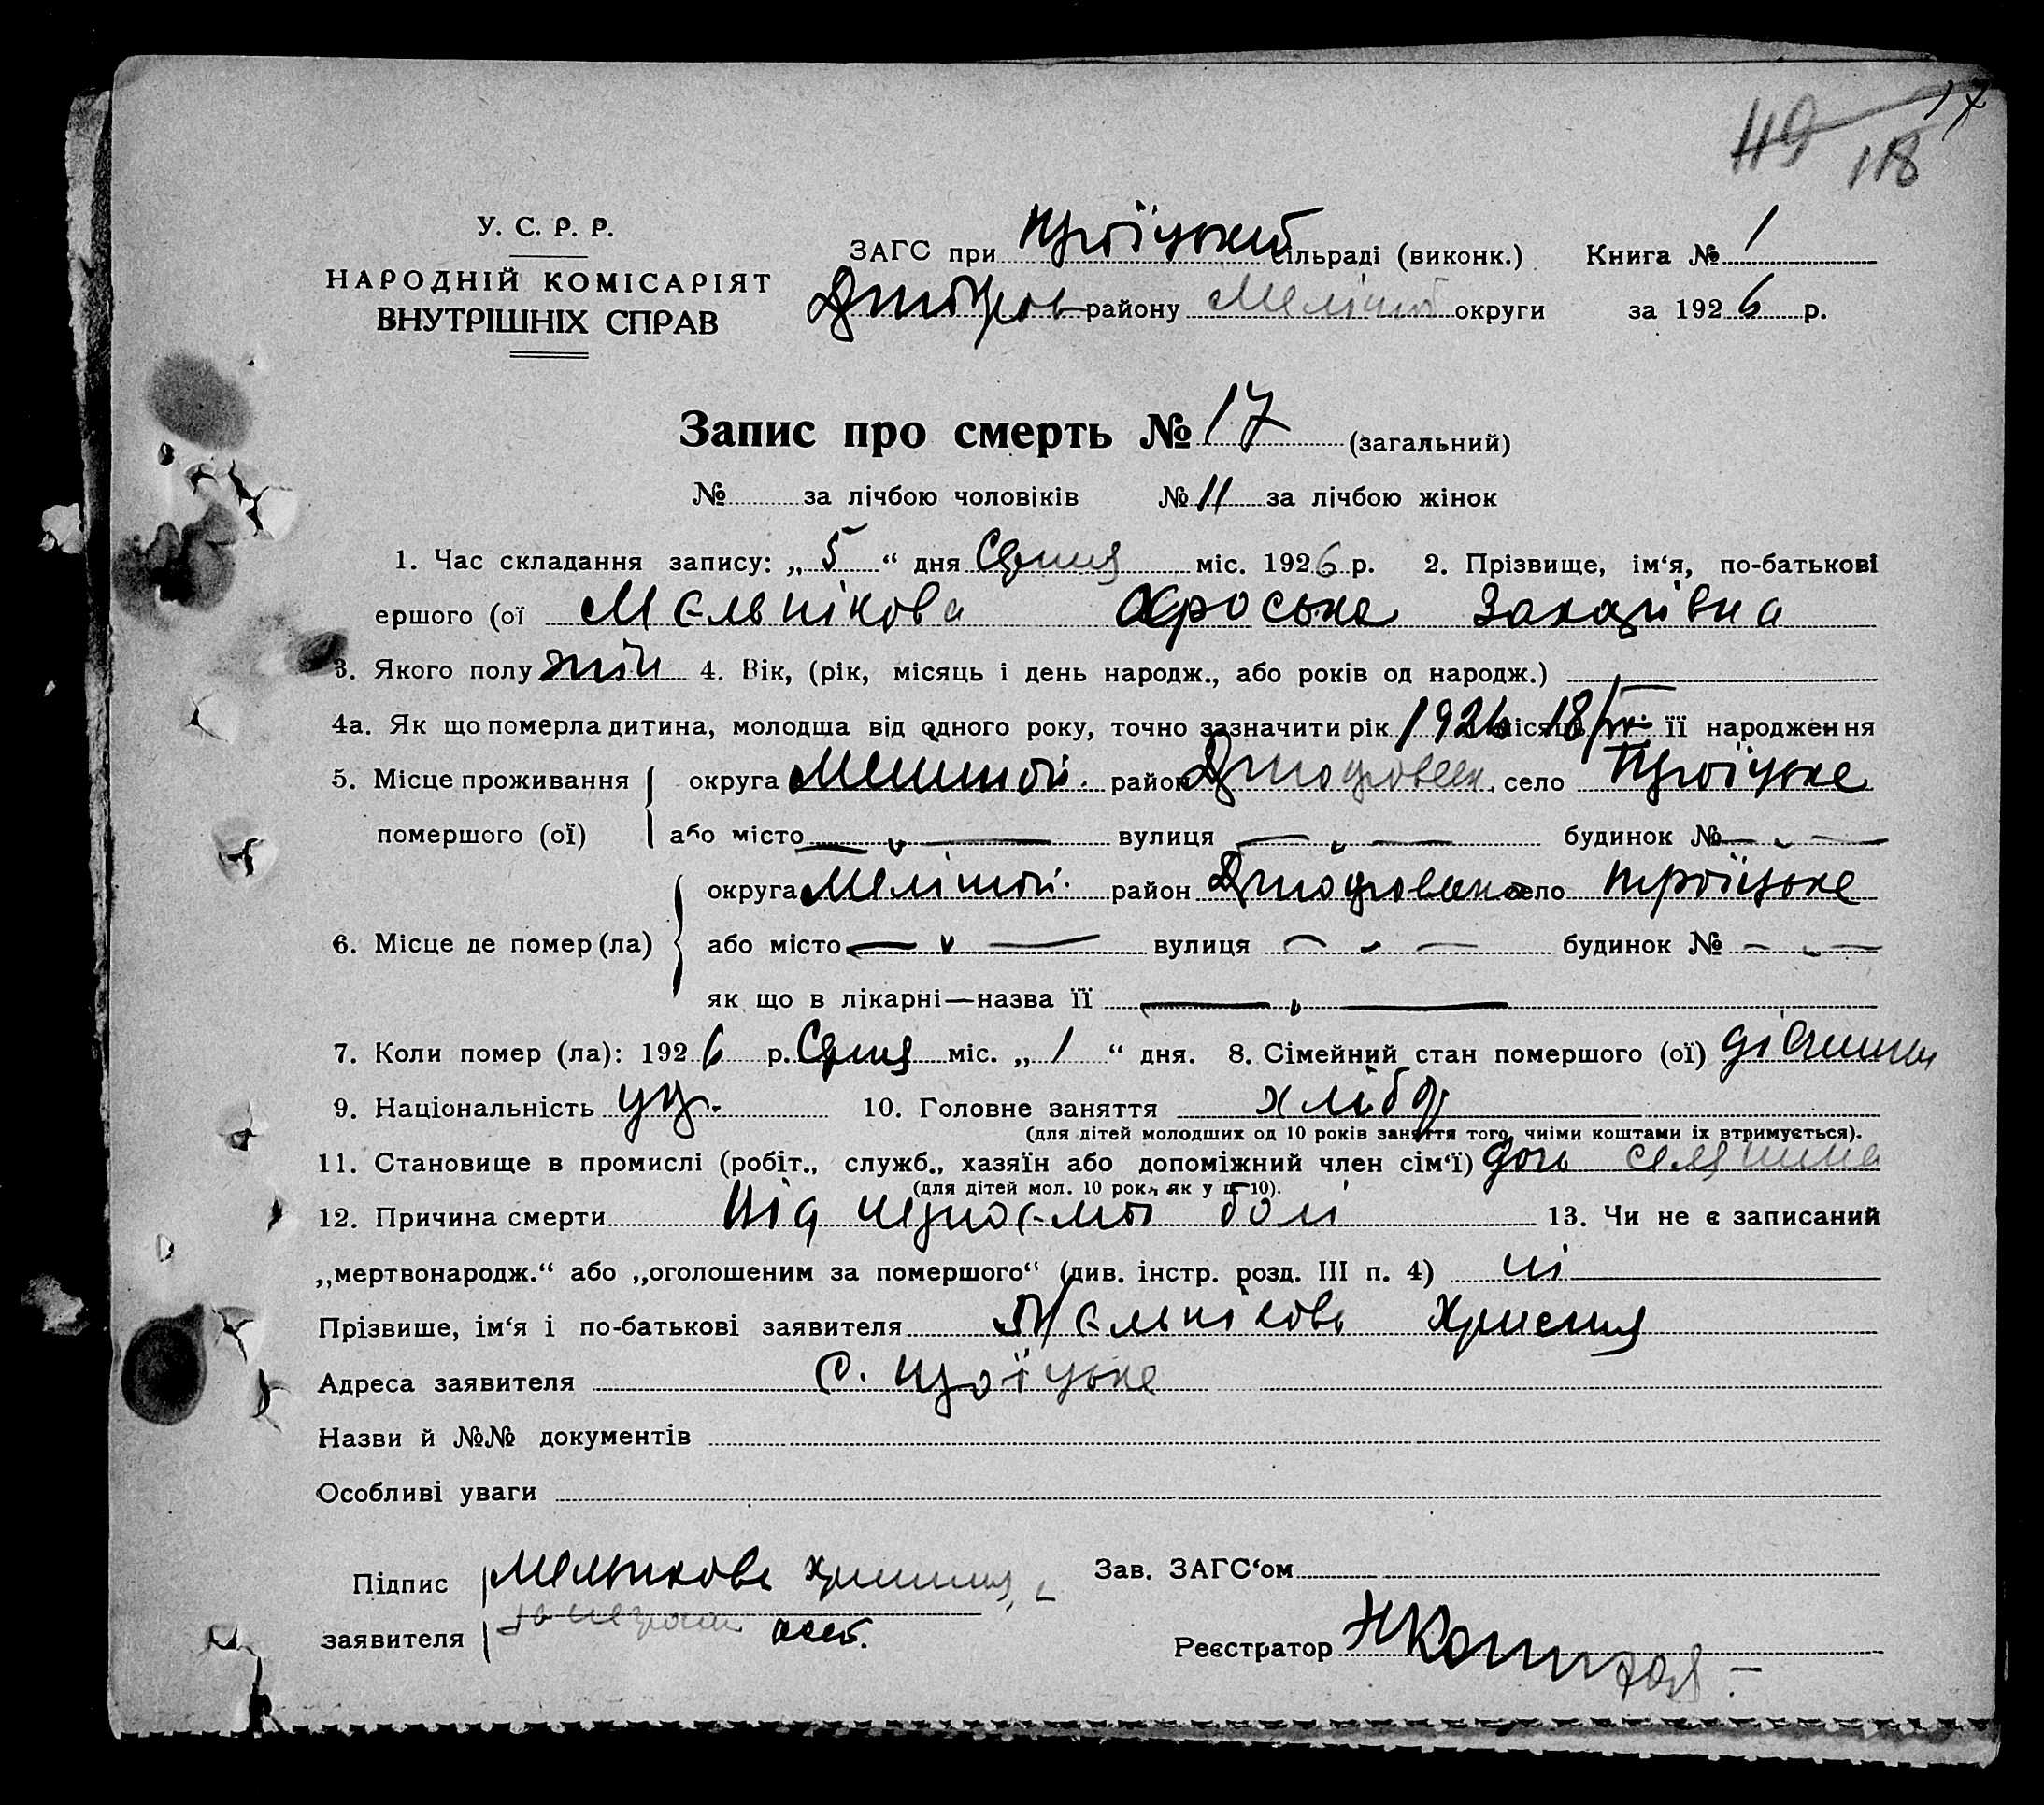 17
49
118
У. С. Р. Р.
НАРОДНІЙ КОМІСАРІЯТ
ВНУТРІШНІХ СПРАВ
ЗАГС при Троїцькій сільраді (виконк.) Книга № 1
району Меліт округи за 1926 р.
Запис про смерть № 17 (загальний)
№ за лічбою чоловіків № 11 за лічбою жінок
1. Час складання запису: „ 5 “ дня Серпня міс. 1926 р. 2. Прізвище, ім‘я, по-батькові
ершого (ої Мельнікова Хроська Захарівна
3. Якого полу жін 4. Вік, (рік, місяць і день народж., або років од народж.)
4а. Як що померла дитина, молодша від одного року, точно зазначити рік 1926 місяць 18/ її народження
5. Місце проживання округа Мелітоп. район село Троїцьке
помершого (ої) або місто — „ — вулиця — „ — будинок № — „ —
округа Мелітоп. район село Троїцьке
6. Місце де помер (ла) або місто — „ — вулиця — „ — будинок № — „ —
як що в лікарні—назва її — „ —
7. Коли помер (ла): 1926 р. Серпня міс. „ 1 “ дня. 8. Сімейний стан помершого (ої) дівчина
9. Національність укр. 10. Головне заняття хлібор
(для дітей молодших од 10 років заняття того, чиїми коштами їх втримується).
11. Становище в промислі (робіт., служб., хазяїн або допоміжний член сім‘ї) дочь селянина
(для дітей мол. 10 рок., як у п. 10).
12. Причина смерти Від болі 13. Чи не є записаний
„мертвонародж.“ або „оголошеним за помершого“ (див. інстр. розд. III п. 4) ні
Прізвише, ім‘я і по-батькові заявителя Мельнікова Христя
Адреса заявителя с. Троїцьке
Назви й №№ документів
Особливі уваги
Підпис Мельникова
заявителя
Зав. ЗАГС‘ом
Реєстратор